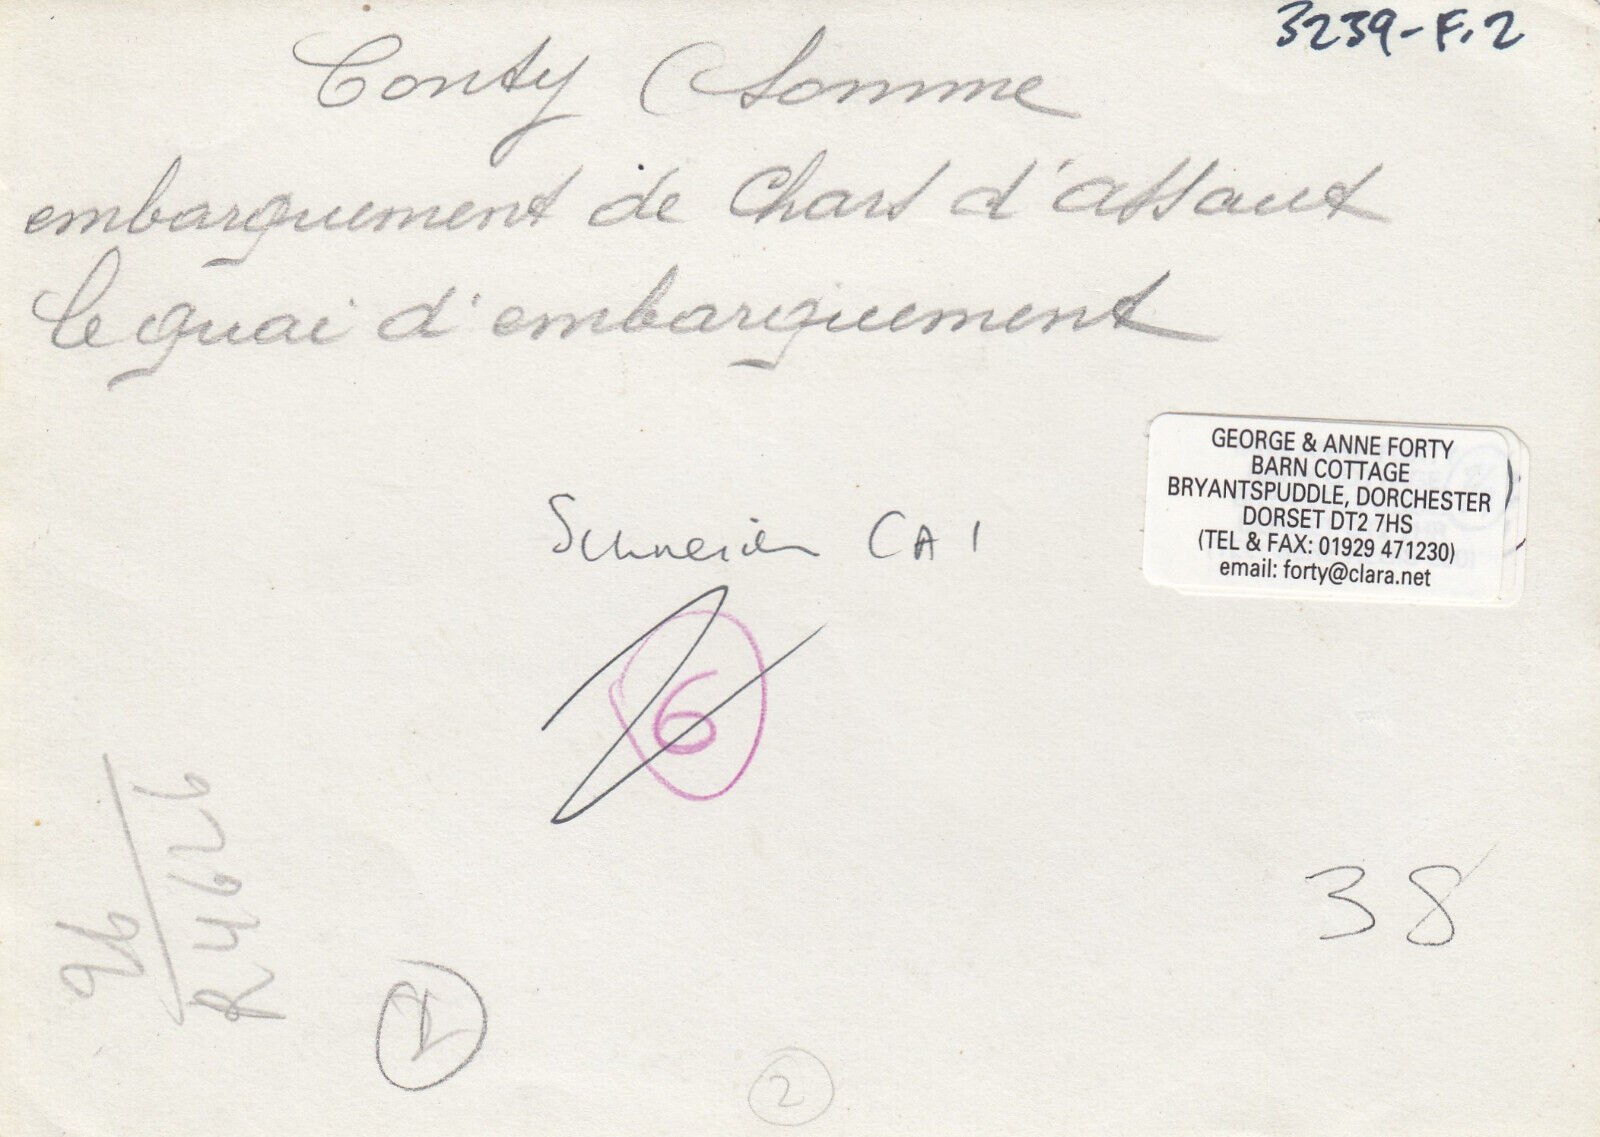 3239-F.2
Conty (Somme
embarquement de Chars d'assaut
le quai d'embarquement
GEORGE & ANNE FORTY
BARN COTTAGE
BRYANTSPUDDLE, DORCHESTER
DORSET DT2 7HS
(TEL & FAX: 01929 471230)
email: forty@clara.net
Schneider CA 1
6
96
R4626
38
2